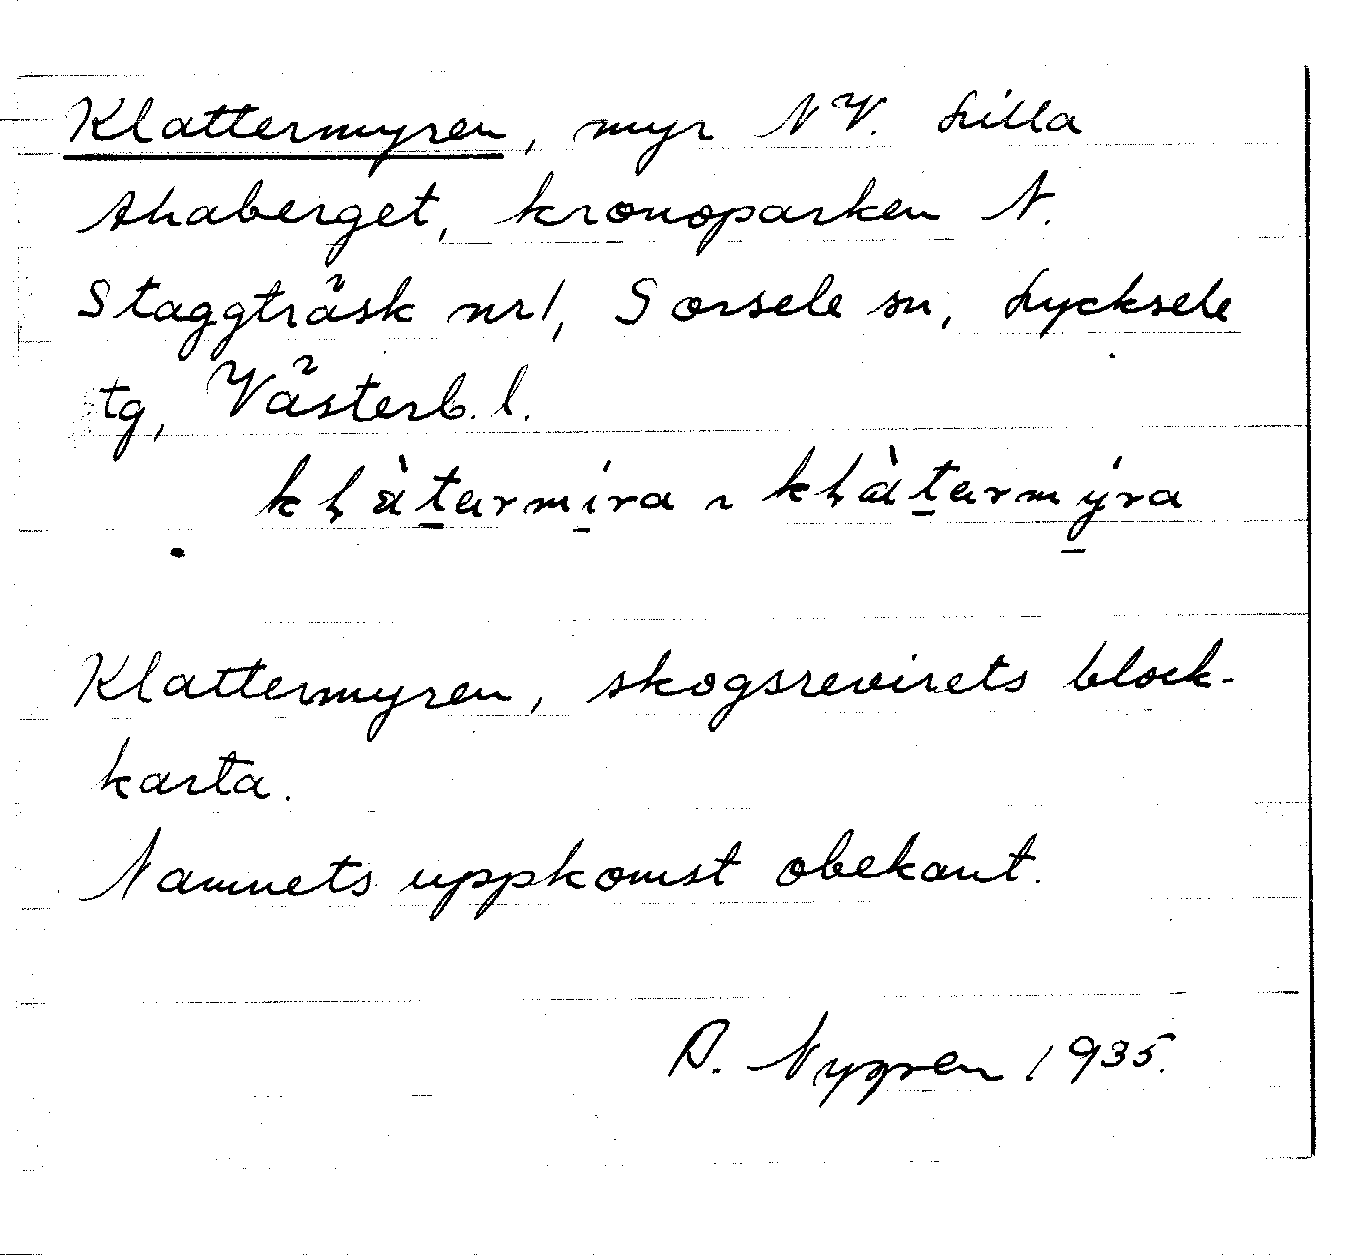 Klattermyren, myr NV. Lilla
Ahaberget, kronoparken N.
Staggträsk nr 1, Sorsele sn, Lycksele
tg, Västerb. l.
klàtarmíra ~ klàtarmýra
Klattermyren, skogsrevirets block-
karta.
Namnets uppkomst obekant.
A. Nygren 1935.